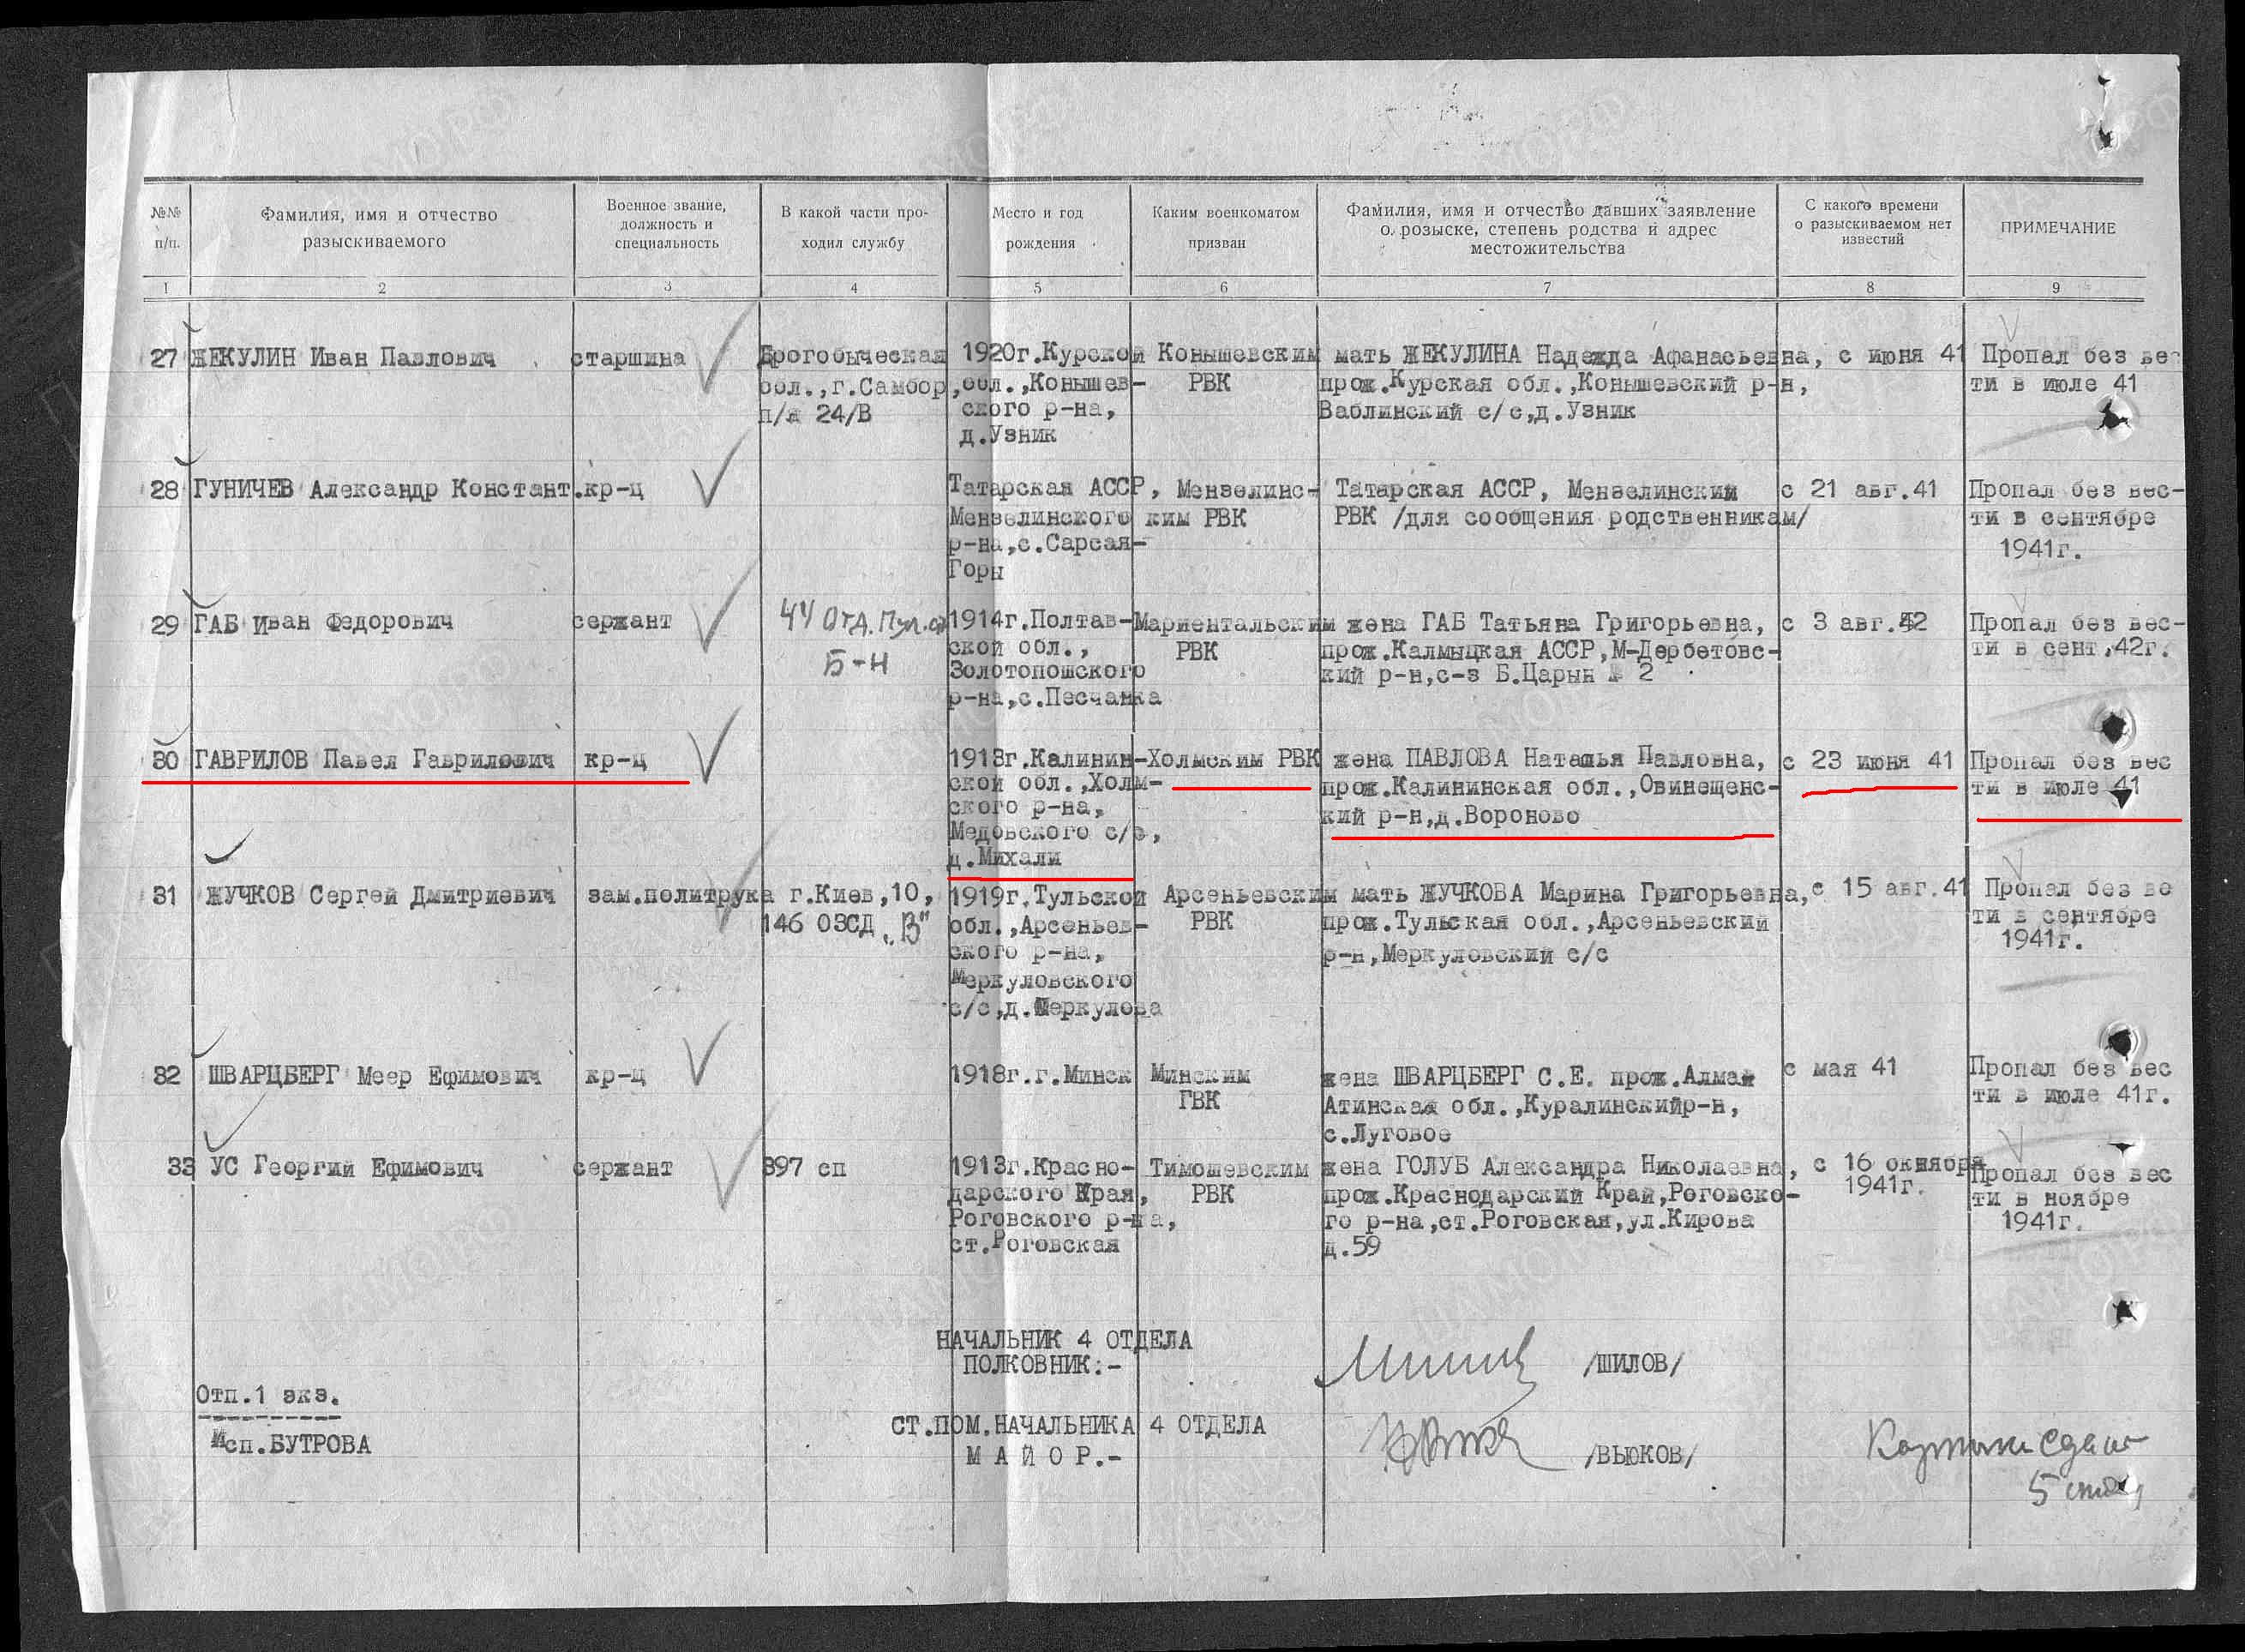 №№ п/п.
Фамилия, имя и отчество разыскиваемого
Военное звание, должность и специальность
В какой части проходил службу
Место и год рождения
Каким военкоматом призван
Фамилия, имя и отчество давших заявление о розыске, степень родства и адрес местожительства
С какого времени о разыскиваемом нет известий
ПРИМЕЧАНИЕ
1 2 3 4 5 6 7 8 9
27 ЖЕКУЛИН Иван Павлович
старшина
Дрогобыческая
обл.,г.Самбор,
п/я 24/В
1920г.Курской
обл.,Конышев-
ского р-на,
д.Узник
Конышевским
РВК
мать ЖЕКУЛИНА Надежда Афанасьевна,
прож.Курская обл.,Конышевский р-н,
Ваблинский с/с,д.Узник
с июня 41
Пропал без вес
ти в июле 41
28 ГУНИЧЕВ Александр Констант.
кр-ц
Татарская АССР,
Мензелинского
р-на,с.Сарсая-
Горы
Мензелинс-
ким РВК
Татарская АССР, Мензелинский
РВК /для сообщения родственникам/
с 21 авг.41
Пропал без вес-
ти в сентябре
1941г.
29 ГАБ Иван Федорович
сержант
44 Отд. Пул.
Б-н
1914г.Полтав-
ской обл.,
Золотопошского
р-на,с.Песчанка
Мариентальским
РВК
жена ГАБ Татьяна Григорьевна,
прож.Калмыцкая АССР,М-Дербетовс-
кий р-н,с-з Б.Царын № 2
с 3 авг.42
Пропал без вес-
ти в сент,42г.
30 ГАВРИЛОВ Павел Гаврилович
кр-ц
1913г.Калинин-
ской обл.,Холм-
ского р-на,
Медовского с/с,
д.Михали
Холмским РВК
жена ПАВЛОВА Наталья Павловна,
прож.Калининская обл.,Овинещенс-
кий р-н,д.Вороново
с 23 июня 41
Пропал без вес
ти в июле 41
31 ЖУЧКОВ Сергей Дмитриевич
зам.политрука
г.Киев,10,
146 ОЗСД „В"
1919г.Тульской
обл.,Арсеньев-
ского р-на,
Меркуловского
с/с,д.Меркулова
Арсеньевским
РВК
мать ЖУЧКОВА Марина Григорьевна,
прож.Тульская обл.,Арсеньевский
р-н,Меркуловский с/с
с 15 авг.41
Пропал без ве
ти в сентябре
1941г.
32 ШВАРЦБЕРГ Меер Ефимович
кр-ц
1918г.г.Минск
Минским
ГВК
жена ШВАРЦБЕРГ С.Е. прож.Алма
Атинская обл.,Куралинскийр-н,
с.Луговое
с мая 41
Пропал без вес
ти в июле 41г.
33 УС Георгий Ефимович
сержант
397 сп
1913г.Красно-
дарского Края,
Роговского р-на,
ст.Роговская
Тимошевским
РВК
жена ГОЛУБ Александра Николаевна,
прож.Краснодарский Край,Роговско-
го р-на,ст.Роговская,ул.Кирова
д.59
с 16 октября
1941г.
Пропал без вес
ти в ноябре
1941г.
НАЧАЛЬНИК 4 ОТДЕЛА
ПОЛКОВНИК:- /ШИЛОВ/
Отп.1 экз.
Исп.БУТРОВА
СТ.ПОМ.НАЧАЛЬНИКА 4 ОТДЕЛА
М А Й О Р.- /ВЬЮКОВ/
5